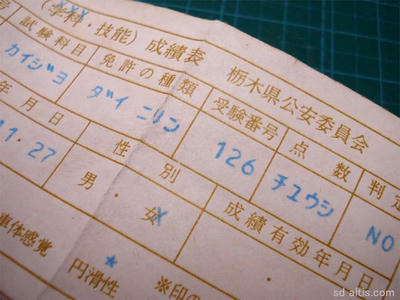 (学科・技能) 成績表 栃木県公安委員会
試験科目 免許の種類 受験番号 点数 判定
カイジヨ ダイ ニリン 126 チユウシ NO
年月日 性別 成績有効年月日
1・27 男・女
車体感覚 円滑性 ※印の
sd-altis.com